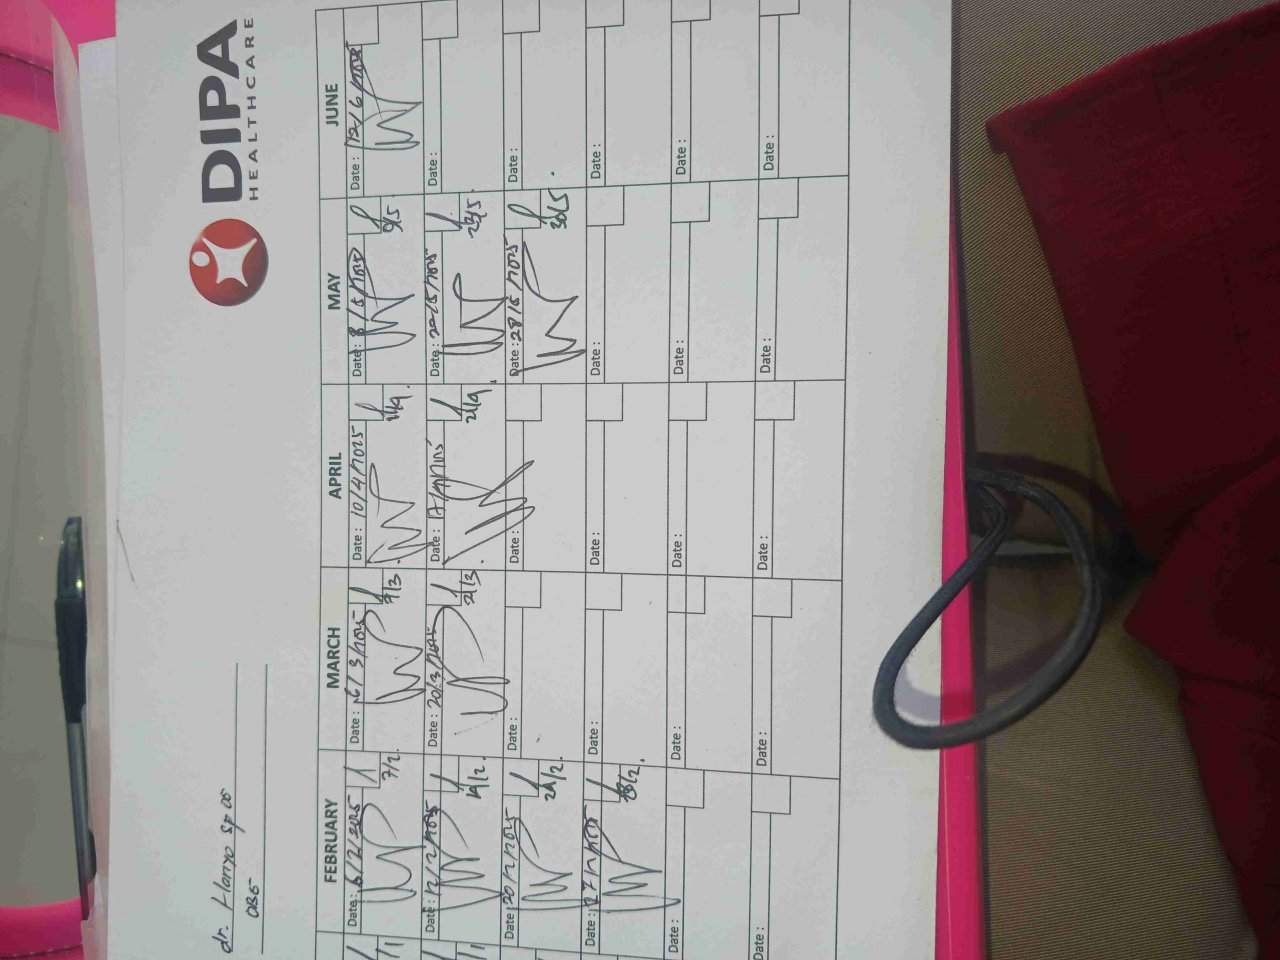 DIPA
HEALTHCARE
dr. Haryo SpOG
FEBRUARY MARCH APRIL MAY JUNE
Date: 6/2/2025 Date: 6/3/2025 Date: 10/4/2025 Date: 8/5/2025 Date: 12/6/2025
7/2 7/3 9/5
Date: 12/2/2025 Date: 20/3/2025 Date: 17/4/2025 Date: 22/5/2025 Date:
14/2 21/3 23/5
Date: 20/2/2025 Date: Date: Date: 28/5/2025 Date:
21/2 30/5
Date: 27/2/2025 Date: Date: Date: Date:
28/2
Date: Date: Date: Date: Date:
Date: Date: Date: Date: Date: